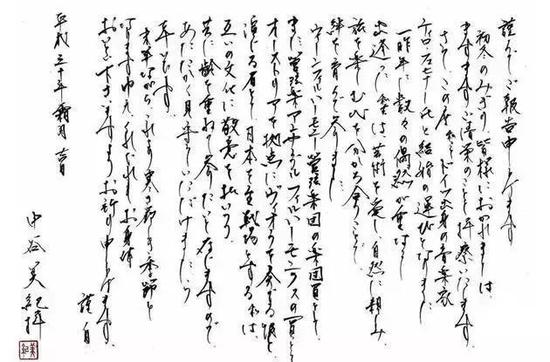 謹んでご報告申し上げます
初冬のみぎり、皆様におかれましては、
ますますご清栄のことと拝察いたします。
さて、この度、ドイツ出身の音楽家
ティロ・フェヒナー氏と結婚の運びとなりました。
一昨年に数々の偶然が重なって
出逢った は芸術を愛し自然に親しみ
旅を楽しむ心を分かち合うことで
絆を育んで参りました。
ウィーンフィルハーモニー管弦楽団の楽団員として
また管弦楽アンサンブル フィルハーモニクスの一員として
オーストリアを拠点にヴィオラを奏でる彼と
演じる者として日本を主戦場とする私は
互いの文化に敬意を払いつつ
共に齢を重ねて参りたいと存じますので
あたたかく見守っていただけましたら
幸いです。
末筆ながらこれより寒さ厳しき季節と
なります中、くれぐれもお身体
おいといくださいますようお祈り申し上げます。
謹白
平成三十年霜月吉日
中谷美紀拝